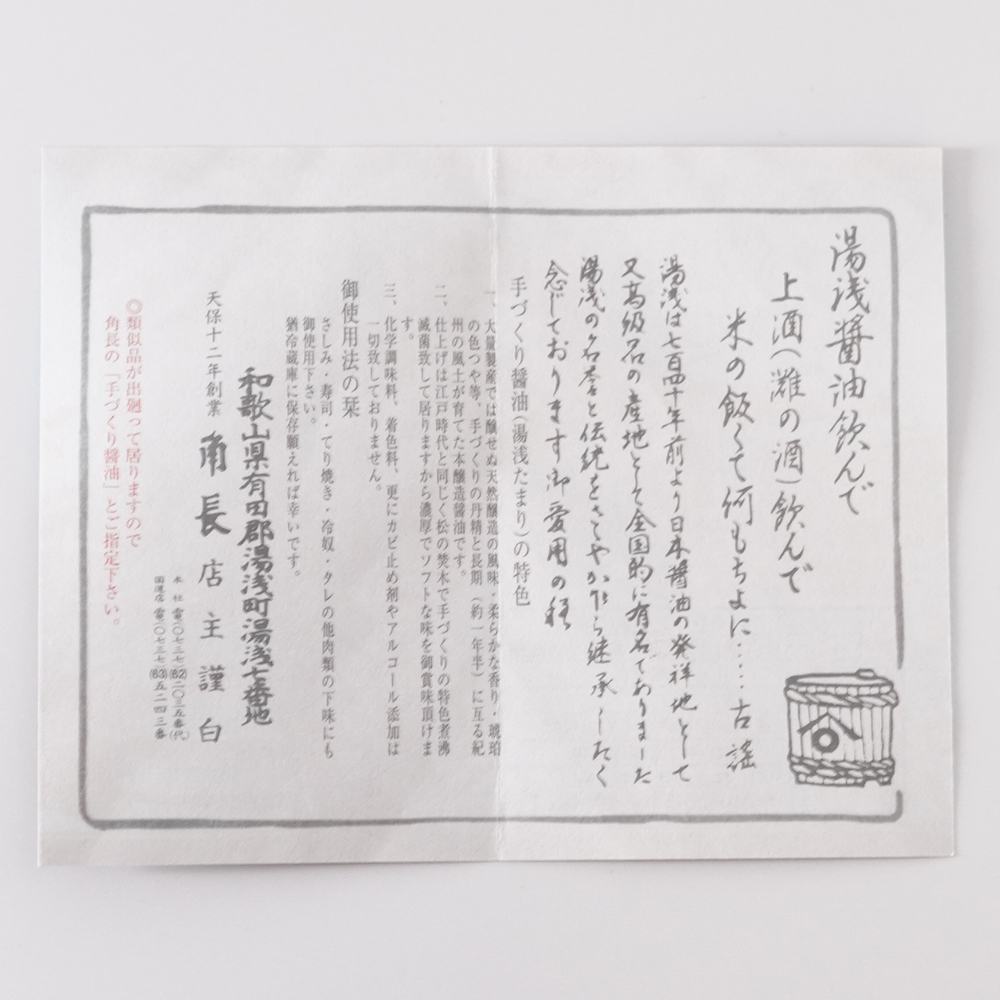 湯浅醤油飲んで
上酒(灘の酒)飲んで
米の飯くて何もちよに……古謡
湯浅は七百四十年前より日本醤油の発祥地として
又高級品の産地として全国的に有名でありました
湯浅の名誉と伝統をさゝやか乍ら継承したく
念じております御愛用の程
手づくり醤油(湯浅たまり)の特色
一、大量製産では醸せぬ天然醸造の風味・柔らかな香り・琥珀
の色つや等、手づくりの丹精と長期(約一年半)に亙る紀
州の風土が育てた本醸造醤油です。
二、仕上げは江戸時代と同じく松の焚木で手づくりの特色煮沸
滅菌致して居りますから濃厚でソフトな味を御賞味頂けま
す。
三、化学調味料、着色料、更にカビ止め剤やアルコール添加は
一切致しておりません。
御使用法の栞
さしみ・寿司・てり焼き・冷奴・タレの他肉類の下味にも
御使用下さい。
猶冷蔵庫に保存願えれば幸いです。
和歌山県有田郡湯浅町湯浅七番地
天保十二年創業 角長 店主謹白
本社 電(〇七三七)(62)二〇三五番(代)
国道店 電(〇七三七)(63)五二四三番
◎類似品が出廻って居りますので
角長の「手づくり醤油」とご指定下さい。